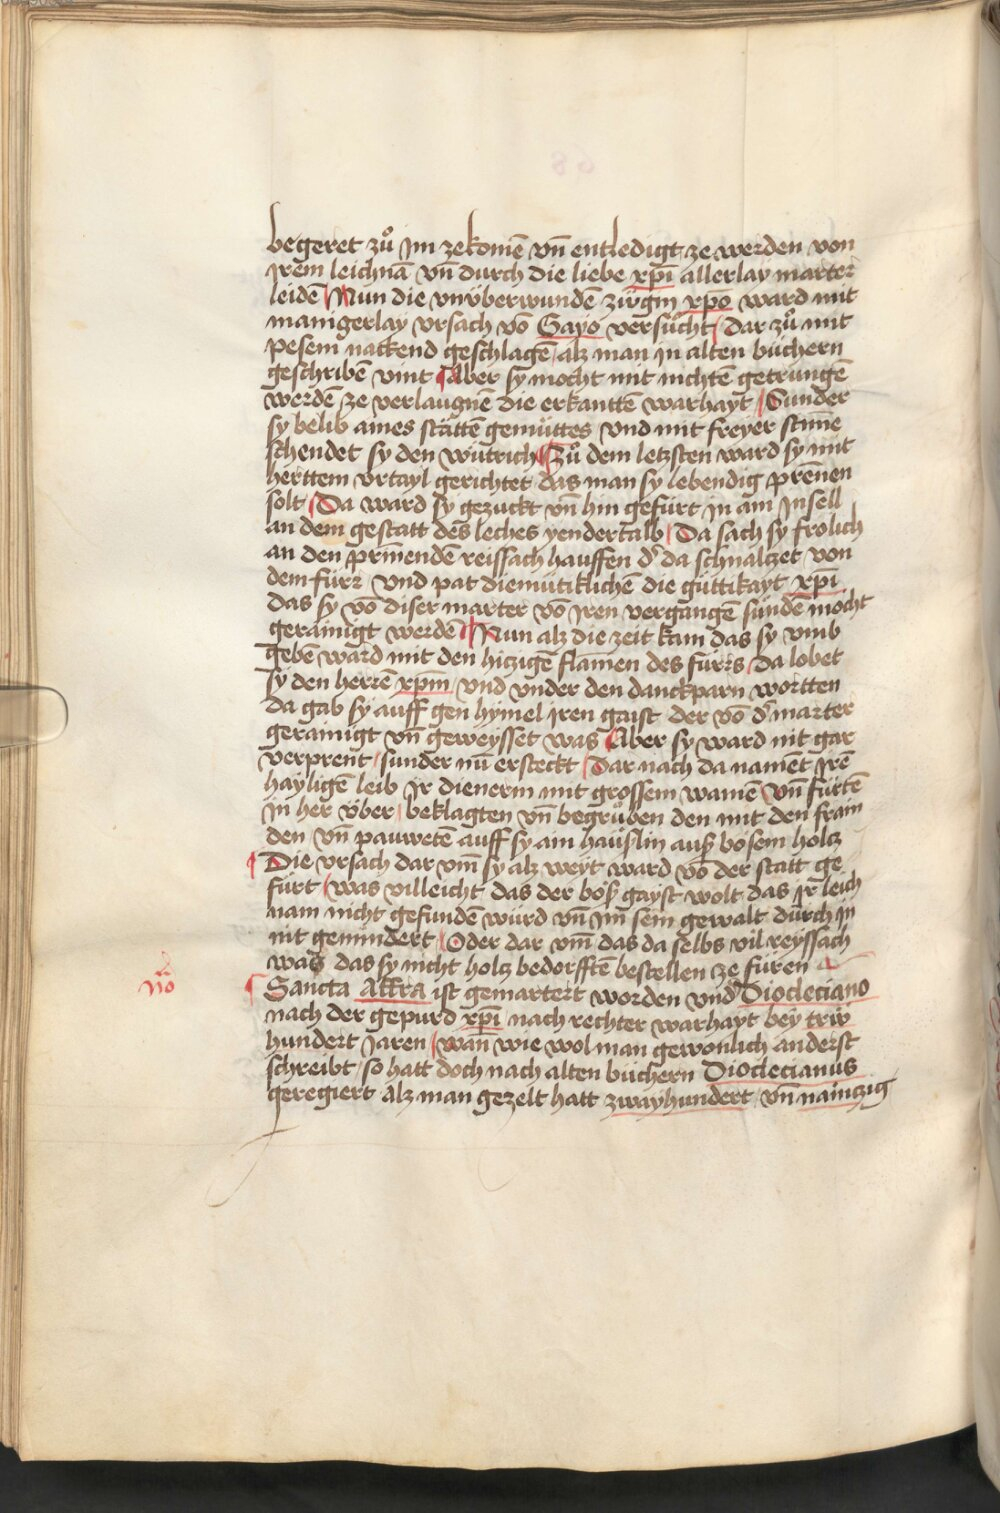 begeret zuͦ Jm zekomē vn̄ entledigt ze werden von
Jrem leichnā vn̄ durch die liebe xp̄i allerlay marter
leidē Nun die vnv̈berwundē zirgin xpo ward mit
manigerlay vrsach vō Gayo versuͦcht dar zuͦ mit
pesem nackend geschlagē alz man in alten büchern
geschribē vint Aber sy mocht mit nichtē getrungē
werdē ze verlaugnē die erkanttē warhayt Sunder
sy belib aines stättē gemüttes vnd mit freyer stim̄e
schendet sy den wütrich Zuͦ dem letzsten ward sy mit
herttem vrtayl gerichtet das man sy lebendig pren̄en
solt Da ward sy gezuckt vn̄ hin gefürt in ain Jnsell
an dem gestatt des leches yendertalb Da sach sy frolich
an den prin̄endē reissach hauffen d' da schnalczet von
dem fürr vnd pat diemütiklichē die güttikayt xp̄i
das sy vō diser marter vō Jren vergangē sündē mocht
gerainigt werdē Nun alz die zeit kam das sy vmb
geben ward mit den hiczigē flam̄en des fürrs da lobet
sy den herrē xp̄m vnd vnder den danckparn wortten
da gab sy auff gen hymel Jren gaist der vō d' marter
gerainigt vn̄ geweysset was Aber sy ward nit gar
verprent sunder nū ersteckt Dar nach da namēt Jrē
hayligē leib Jr dienerin mit grossem wainē vn̄ fürtē
in her v̈ber beklagten vn̄ begruͦben den mit den frain
den vn̄ pauwetē auff sy ain häuslin auß bösem holcz
Die vrsach dar vm̄ sy alz weyt ward vō der statt ge
fürt was villeicht das der böß gayst wolt das Jr leich
nam nicht gefundē würd vn̄ im sein gewalt durch in
nit gemindert Oder dar vm̄ das da selbs vil reyssach
was das sy nicht holcz bedorfftē bestellen ze füren
Sancta Affra ist gemartert worden vnd' Diocleciano
nach der gepurd xp̄i nach rechter warhayt bey triw
hundert Jaren wan̄ wie wol man gewonlich anderst
schreibt so hatt doch nach alten büchern Dioclecianus
geregiert alz man gezelt hatt zwayhundert vn̄ näinczig